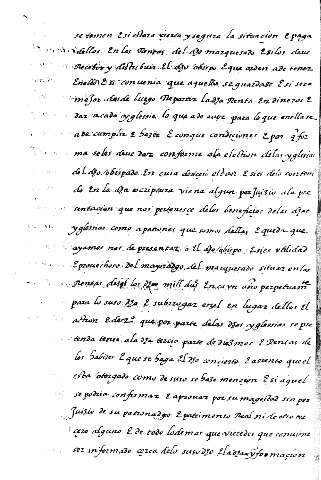 se tomen E si ellas y renta y segura la situacion E paga
dellos. En las Rentas del dho marquesado E si los deue
Recebir y distribuir El dho obispo E que orden a de tener
En ello E si convenia que aquello se guardase E si sera
mejor desde luego Repartir la dha Renta en dineros E
dar a cada yglesia lo que a de auer para lo que en ella se
a de cumplir E hazer E con que condiciones E por q forma
se les deue dar conforme a la election de las yglesias
del dho obispado. En cuia descrio el don. E si es delo contenido
En la dha escriptura viene algun perjuizio a la presentacion
que nos pertenesce delos beneficios de las dhas
yglesias como a patrones que somos dellas E queda que
ayamos nos de presentar o El dho obispo E si es vtilidad
E prouechoso del mayoradgo del marquesado situar en las
Rentas del los dhos mill du en cada vn año perpetuamte
para lo suso dho E subrrogar en el en lugar dellos El
action E derº que por parte de las dhas yglesias se pretenda
tener a la dha tercia parte de diezmos E Rentas de
los habices E que se haga El dho concierto E asiento que el
esta otorgado como de suso se haze mencion E si aquel
se podria confirmar E aprouar por su magestad sin perjuizio
de su patronadgo E patrimonio Real ni de otro tercero
alguno E de todo lo demas que vieredes que conuiene
ser informado cerca delo susodho E la dha ynformacion